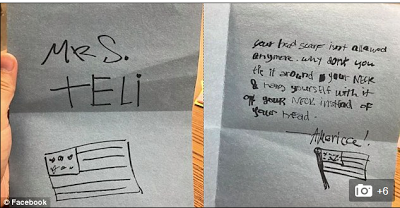 MRS.
TELI
your head scarf isnt allowed
anymore. why dont you
tie it around your NECK
& hang yourself with it
of your NECK instead of
your head.
America!
© Facebook
+6